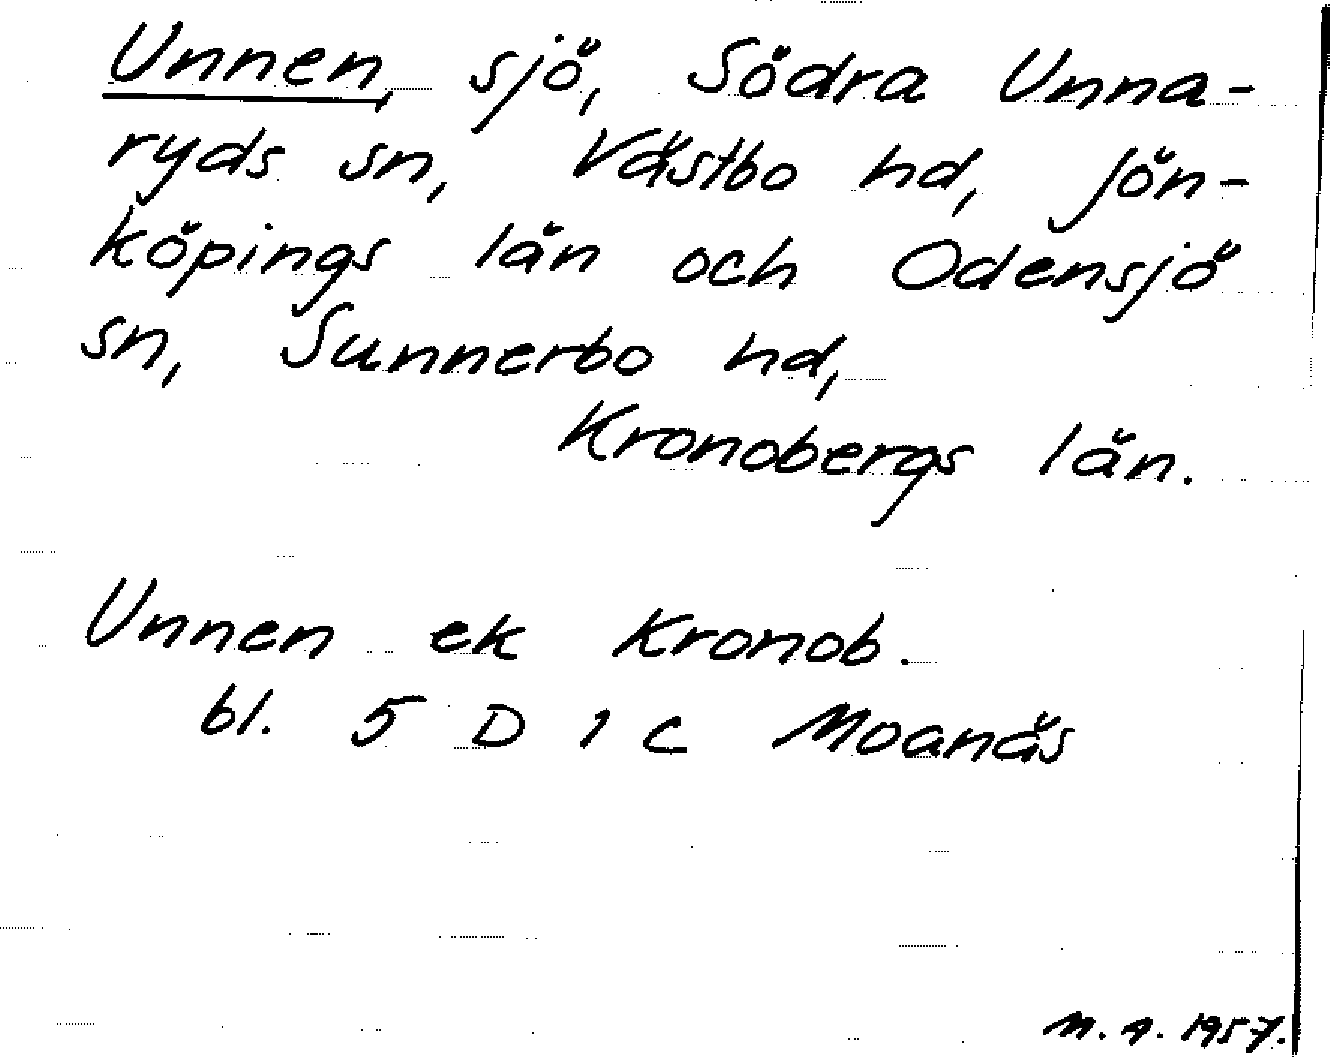 Unnen, sjö, Södra Unna-
ryds sn, Västbo hd, Jön-
köpings län och Odensjö
sn, Sunnerbo hd,
Kronobergs län.
Unnen ek Kronob.
bl. 5 D 1 c Moanäs
M. A. 1957.